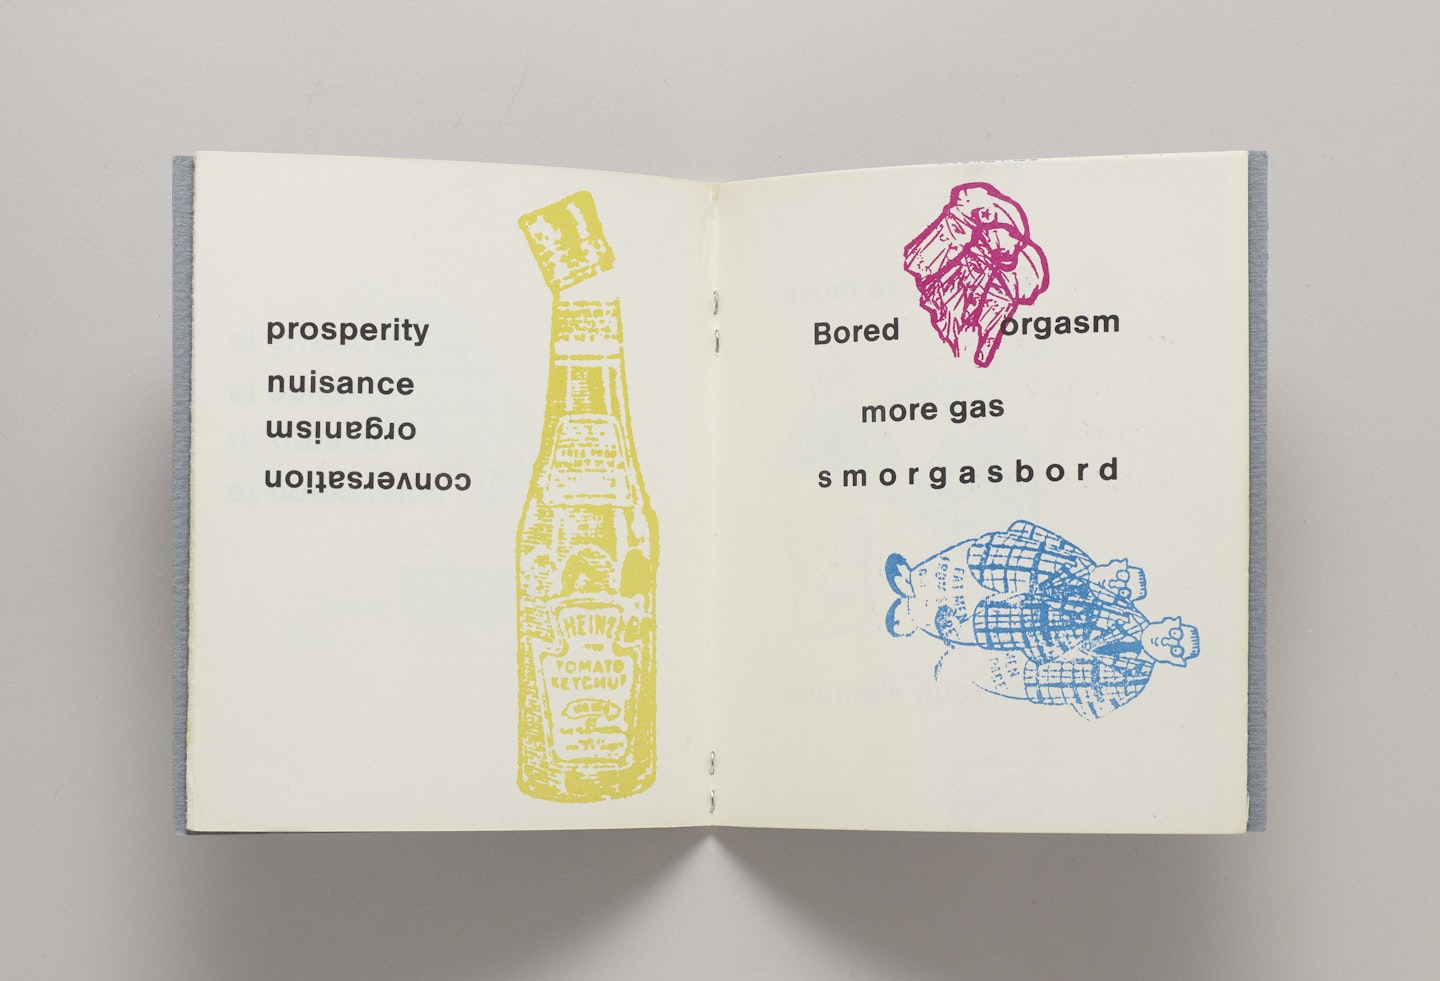 prosperity
nuisance
organism
conversation
HEINZ
TOMATO
KETCHUP
Bored orgasm
more gas
smorgasbord
FAT MEN